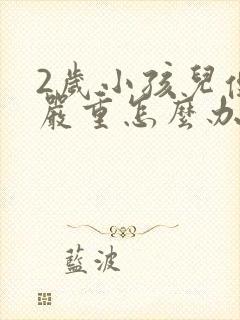 2歲小孩兒
嚴重怎麼办
藍波